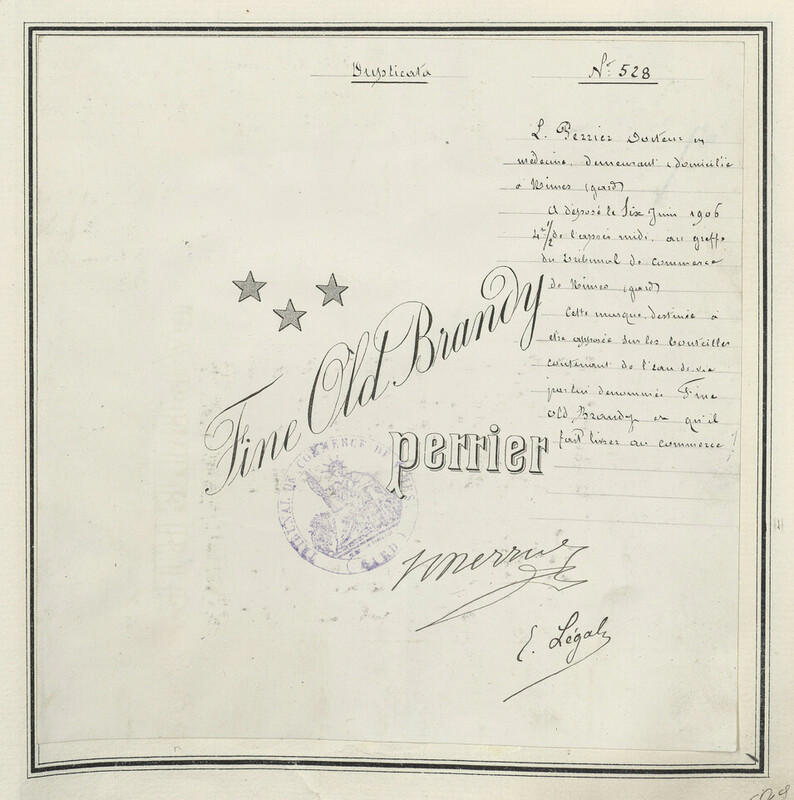 Duplicata
No. 528
L. Perrier Docteur en
médecine, demeurant & domicilié
à Nîmes (gard)
A déposé le Six Juin 1906
4h 1/2 de l'après midi, au greffe
du Tribunal de commerce
de Nîmes (gard)
Cette marque, destinée à
être apposée sur les bouteilles
contenant de l'eau de vie
par lui denommée Fine
Old Brandy et qu'il
fait livrer au commerce
Fine Old Brandy
perrier
TRIBUNAL DE COMMERCE DE NIMES
(GARD)
E. Légal